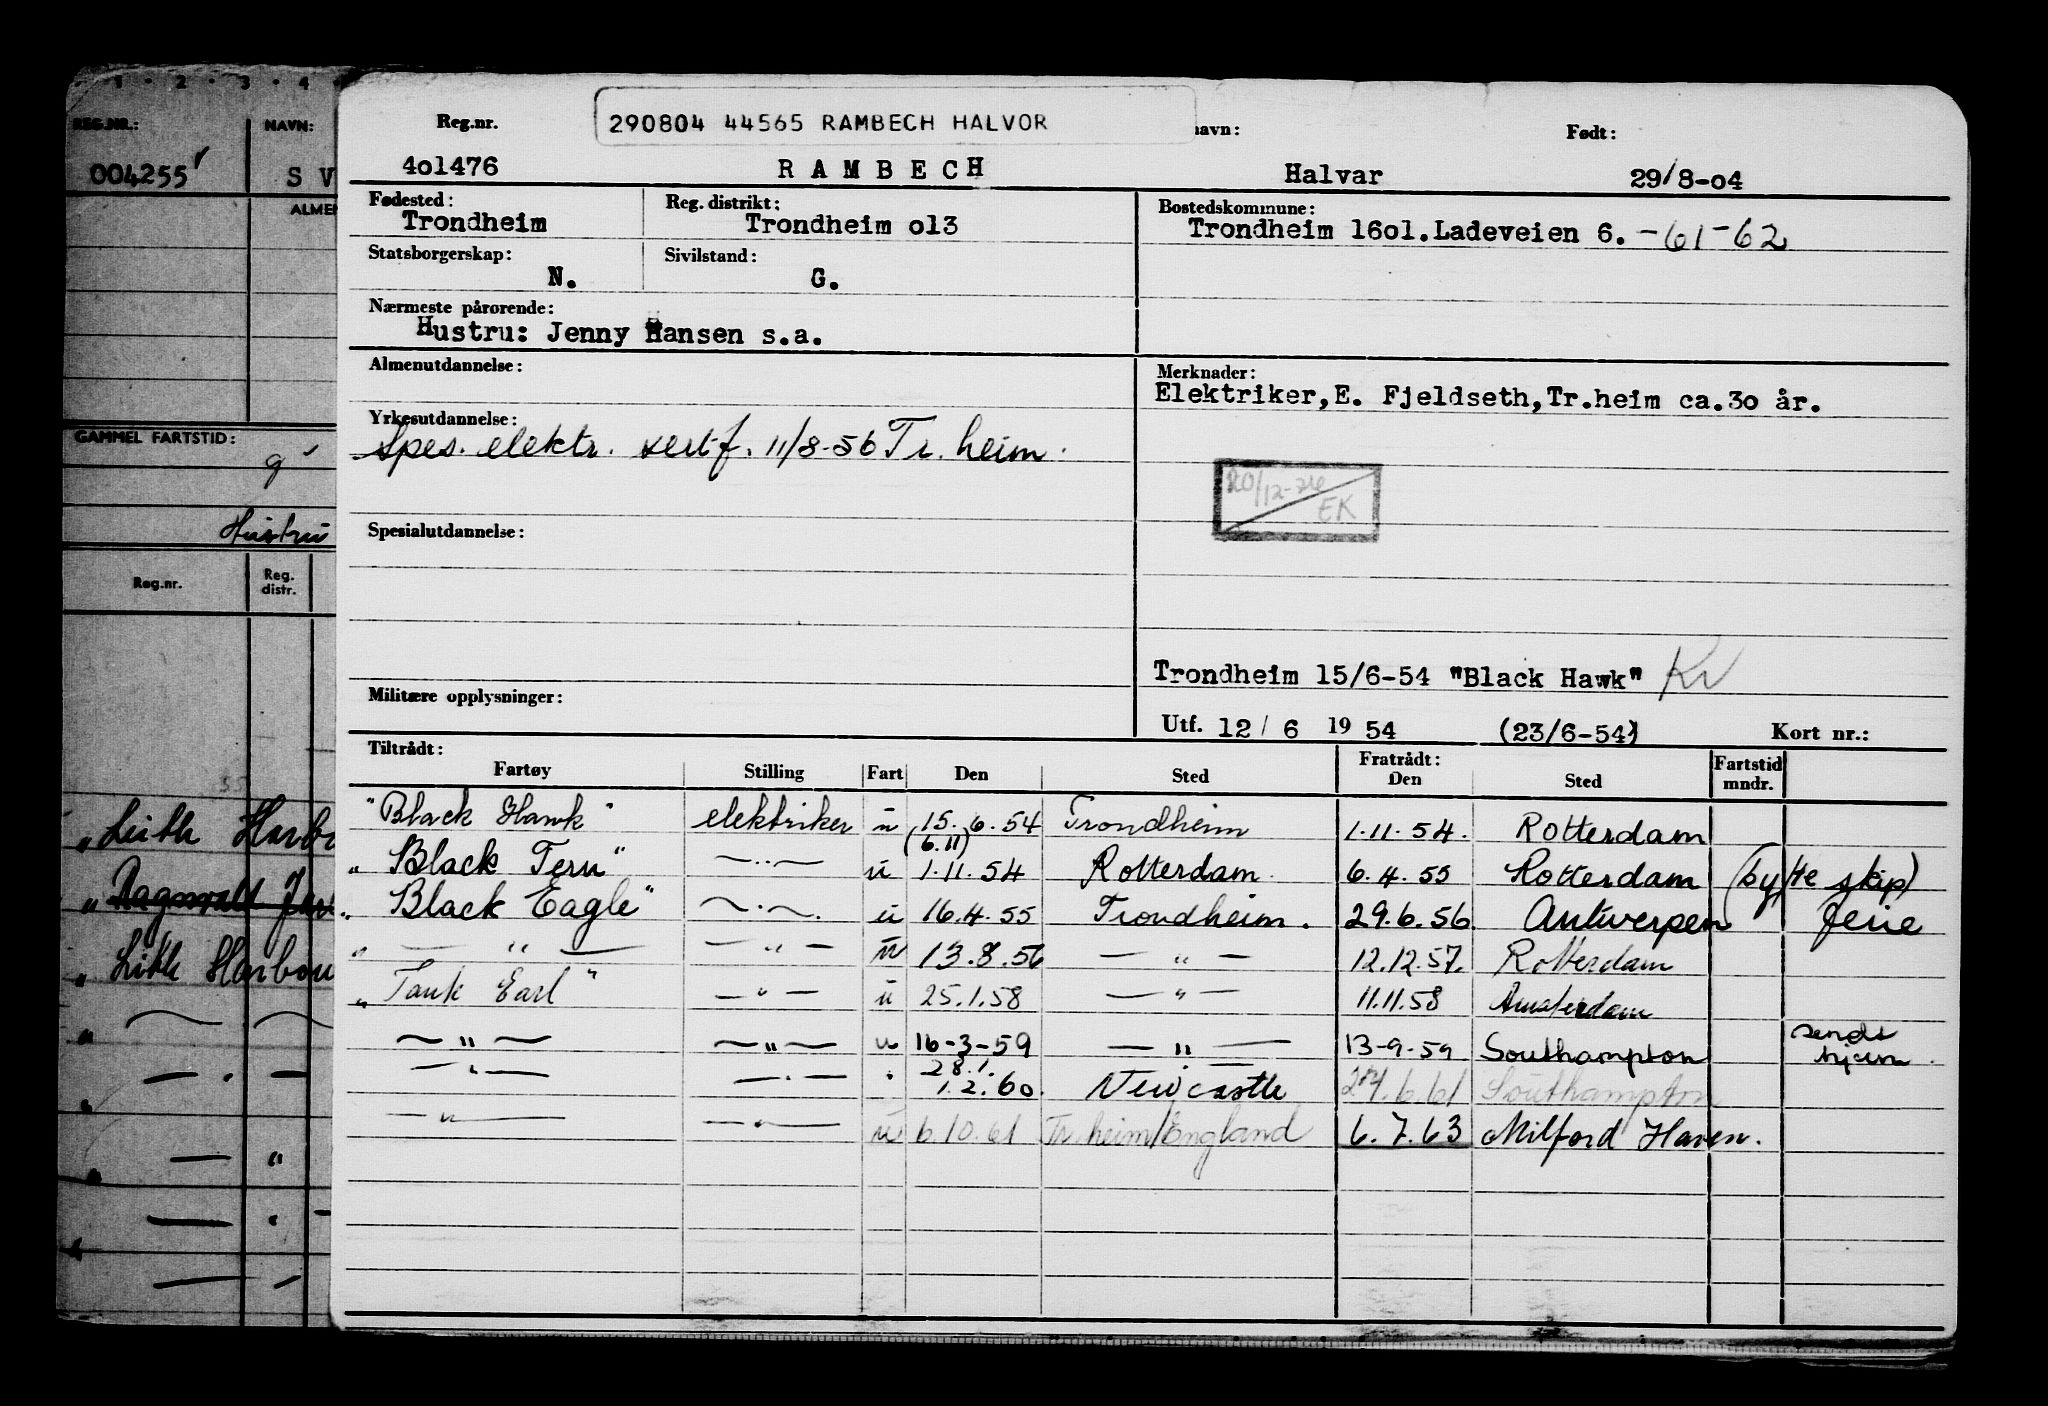 1 · 2 · 3 · 4
REG.NR.: NAVN:
004255 S V
ALMEN
GAMMEL FARTSTID:
Hustru
Reg.nr. Reg. distr.
„ Leith Harbo
„ Ragnvald Jar
„ Lith Harbou
290804 44565 RAMBECH HALVOR
Reg.nr. navn: Født:
4o1476 RAMBECH Halvar 29/8-o4
Fødested: Reg. distrikt: Bostedskommune:
Trondheim Trondheim o13 Trondheim 16o1.Ladeveien 6. -61-62
Statsborgerskap: Sivilstand:
N. G.
Nærmeste pårørende:
Hustru: Jenny Hansen s.a.
Almenutdannelse: Merknader:
Elektriker,E. Fjeldseth,Tr.heim ca.3o år.
Yrkesutdannelse:
Spes. elektr. sertf. 11/8-56 Tr.heim.
20/12-76
EK
Spesialutdannelse:
Trondheim 15/6-54 "Black Hawk" Kv
Militære opplysninger:
Utf. 12/ 6 19 54 (23/6-54) Kort nr.:
Tiltrådt: Fratrådt: Fartstid
Fartøy Stilling Fart Den Sted Den Sted mndr.
"Black Hawk" elektriker u 15.6.54 Trondheim 1.11.54. Rotterdam
(6.11)
„Black Tern" —„— u 1.11.54 Rotterdam 6.4.55 Rotterdam (bytte skip)
„Black Eagle" —„— u 16.4.55 Trondheim. 29.6.56 Antwerpen ferie
„ — „ — — „ — u 13.8.56 — „ — 12.12.57. Rotterdam
„Tank Earl" — „ — u 25.1.58 — „ — 11.11.58 Amsterdam
— „ — — „ — u 16-3-59 — „ — 13-9-59 Southampton sendt hjem.
28.1.
— „ — — „ — „ 1.2.60. Newcastle 24.6.61 Southampton
— „ — — „ — u 6.10.61 Tr.heim/England 6.7.63 Milford Haven.